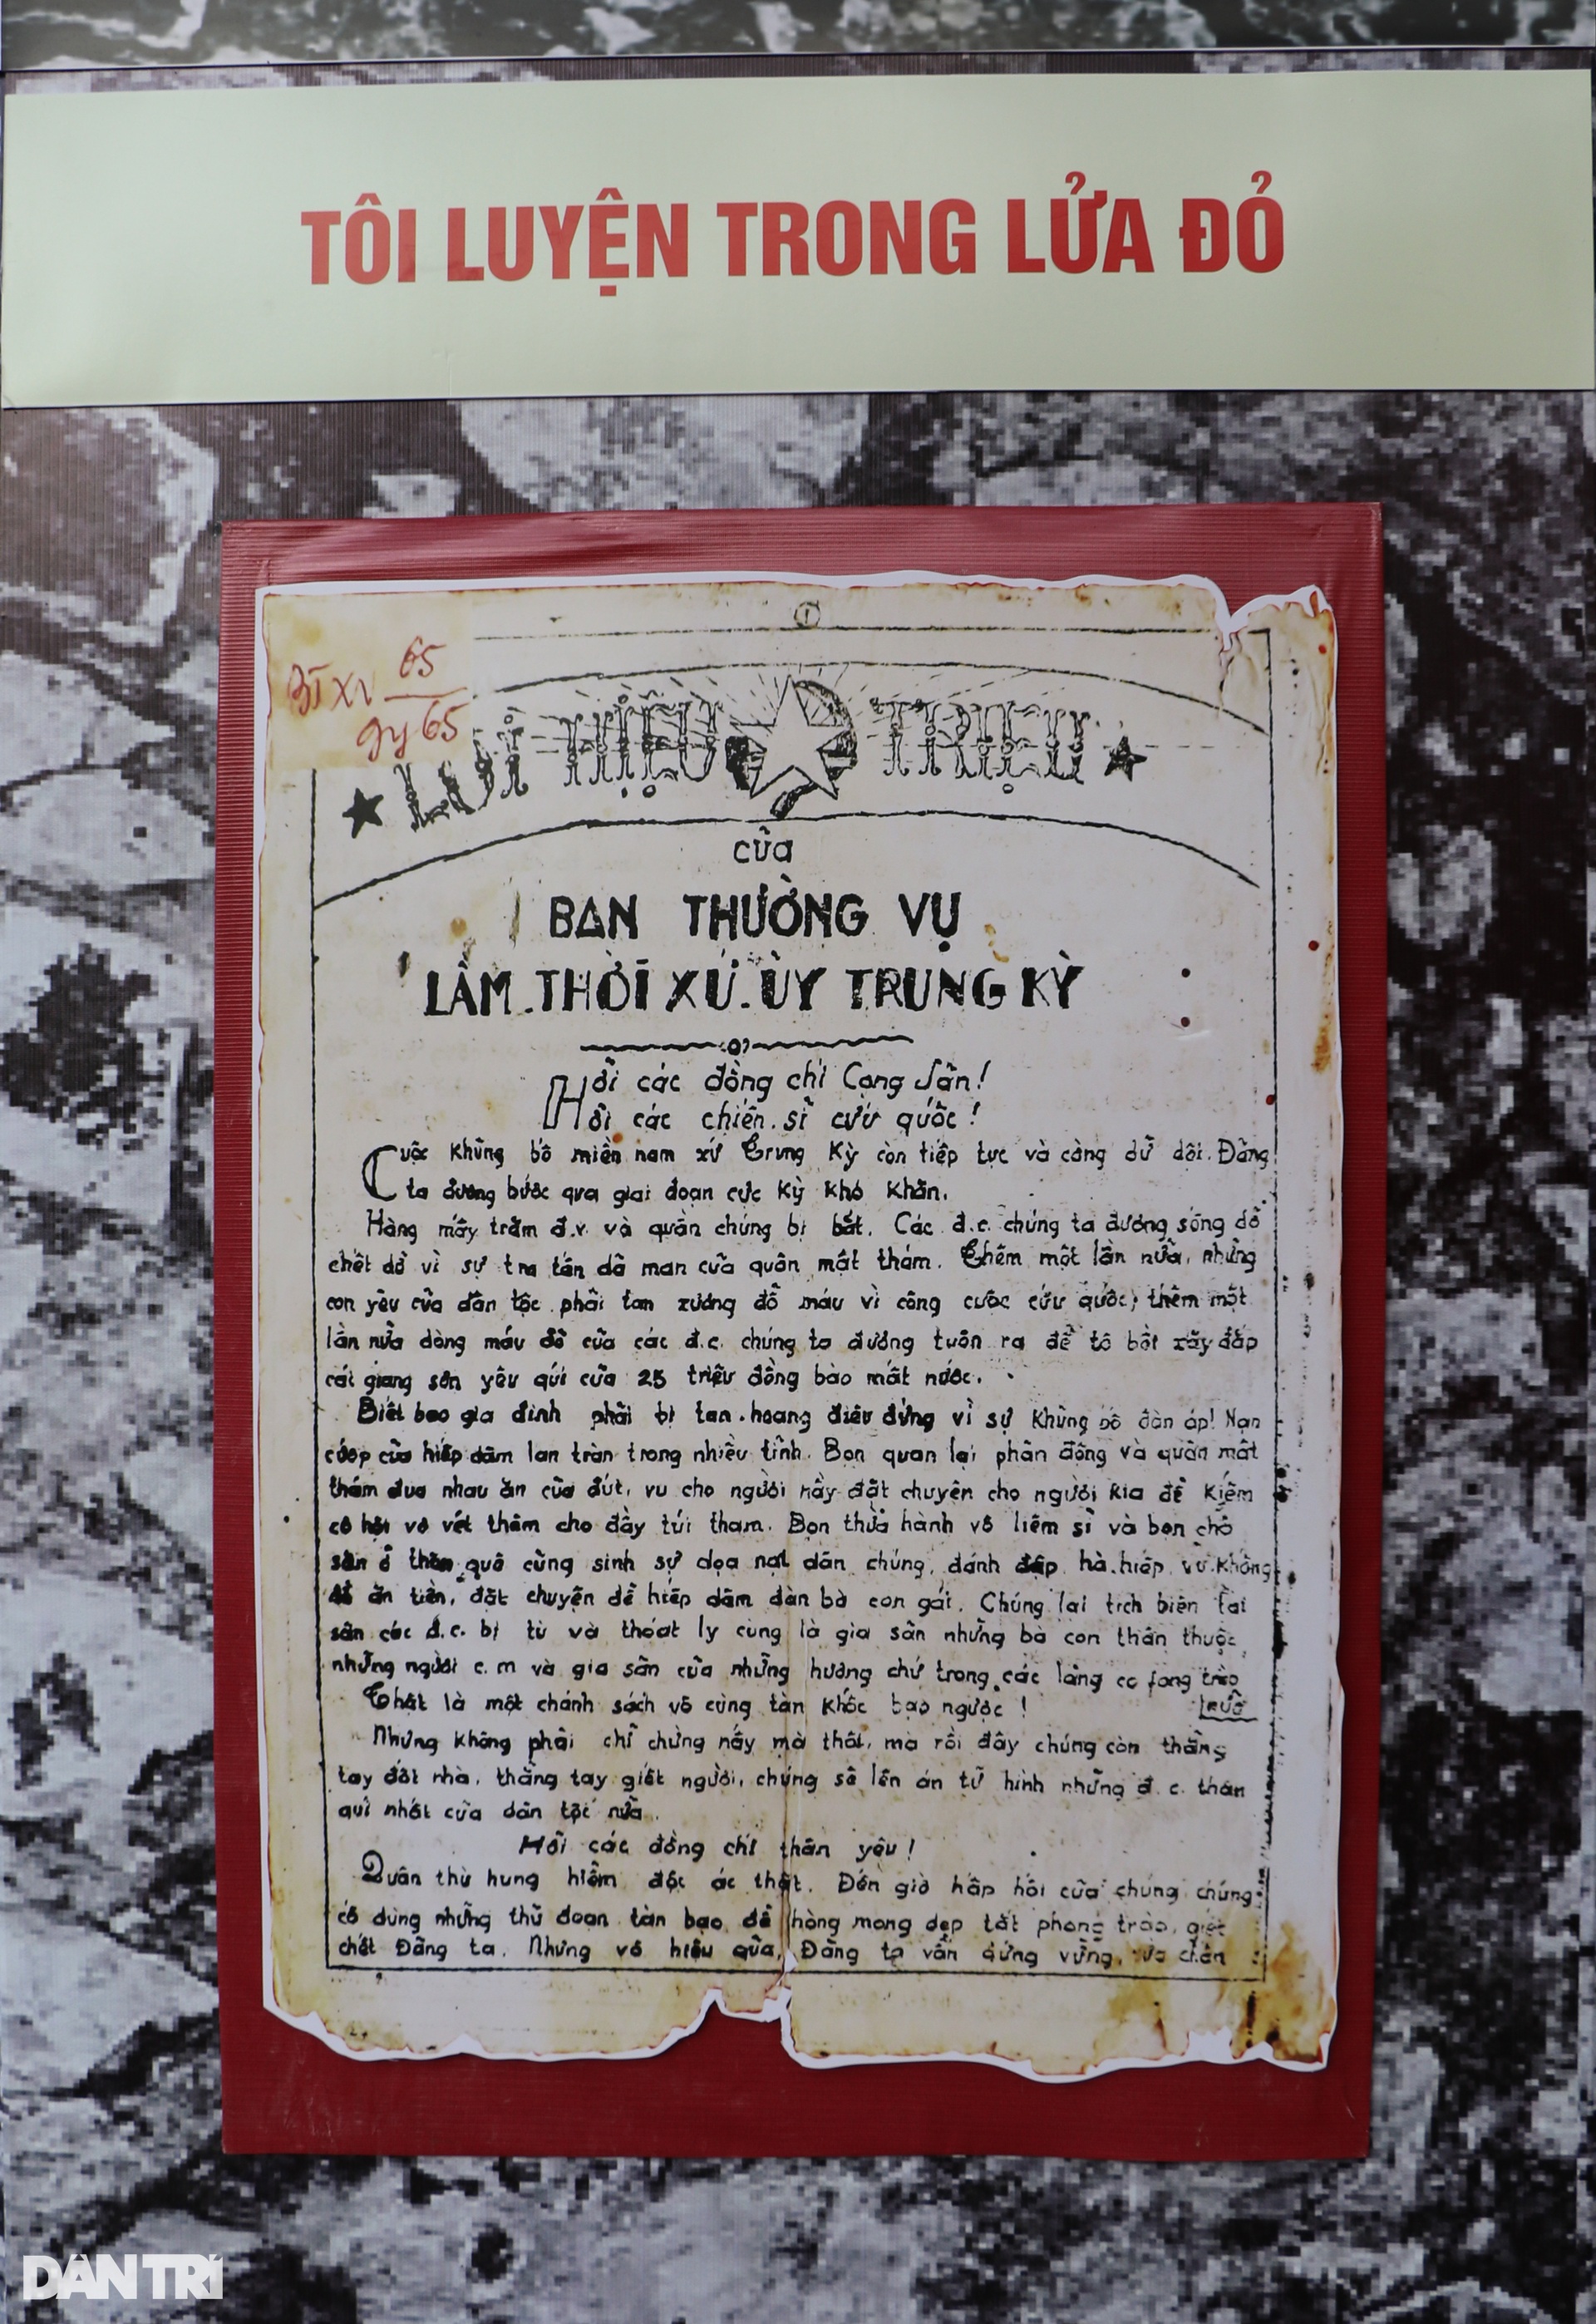 TÔI LUYỆN TRONG LỬA ĐỎ
①
65
gy 65
LỜI HIỆU TRIỆU
của
BAN THƯỜNG VỤ
LÂM.THỜI XỨ.ỦY TRUNG KỲ
Hỡi các đồng chí Cọng sản!
Hỡi các chiến.sĩ cứu quốc!
Cuộc khủng bố miền nam xứ Trung Kỳ còn tiếp tục và càng dữ dội. Đảng
ta đương bước qua giai đoạn cực kỳ khó khăn.
Hàng mấy trăm đ.v. và quần chúng bị bắt. Các đ.c. chúng ta đương sống dở
chết dở vì sự tra tấn dã man của quân mật thám. Thêm một lần nữa, những
con yêu của dân tộc phải tan xương đổ máu vì công cuộc cứu quốc; thêm một
lần nữa dòng máu đỏ của các đ.c. chúng ta đương tuôn ra để tô bồi xây đắp
cái giang sơn yêu quí của 25 triệu đồng bào mất nước.
Biết bao gia đình phải bị tan.hoang điêu đứng vì sự khủng bố đàn áp! Nạn
cướp của hiếp dâm lan tràn trong nhiều tỉnh. Bọn quan lại phản động và quân mật
thám đua nhau ăn của đút, vu cho người nầy đặt chuyện cho người kia để kiếm
cơ hội vơ vét thêm cho đầy túi tham. Bọn thừa hành vô liêm sỉ và bọn chó
săn ở thôn quê cũng sinh sự dọa nạt dân chúng, đánh đập hà.hiếp vu.không
để ăn tiền, đặt chuyện để hiếp dâm đàn bà con gái. Chúng lại tịch biên tài
sản các đ.c. bị tù và thoát ly cùng là gia sản những bà con thân thuộc
những người c.m và gia sản của những hương chứ trong các làng co fong trào
Thật là một chánh sách vô cùng tàn khốc bạo ngược!
Nhưng không phải chỉ chừng nấy mà thôi, mà rồi đây chúng còn thẳng
tay đốt nhà, thẳng tay giết người, chúng sẽ lên án tử hình những đ.c. thân
quí nhất của dân tộc nữa.
Hỡi các đồng chí thân yêu!
Quân thù hung hiểm độc ác thật. Đến giờ hấp hối của chúng chúng
cố dùng những thủ đoạn tàn bạo để hòng mong dẹp tắt phong trào, giết
chết Đảng ta. Nhưng vô hiệu quả, Đảng ta vẫn đứng vững,
DÂN TRÍ